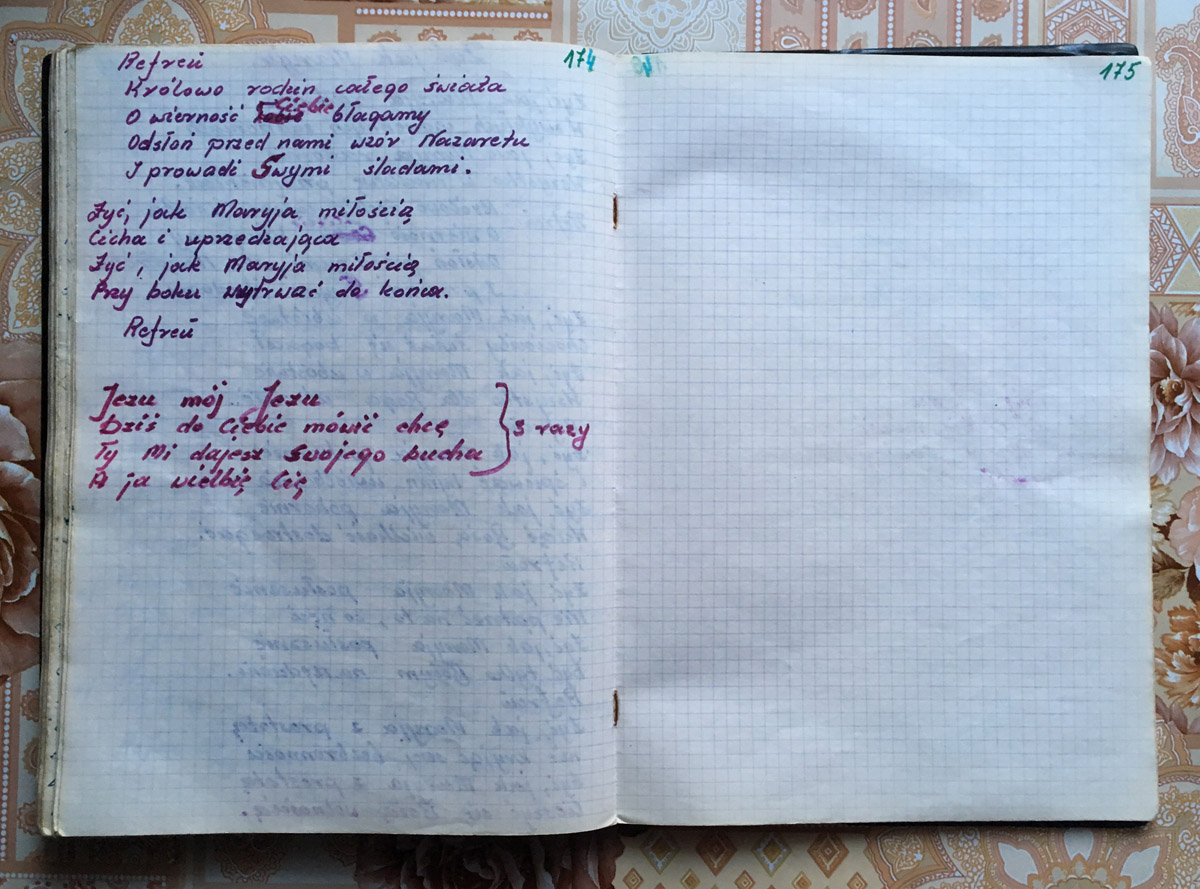 174
Refreń
Królowo rodzin całego świata
O wierność Ciebie błagamy
Odsłoń przed nami wzór Nazaretu
I prowadi Swymi śladami.
Żyć, jak Maryja miłością
Cicha i uprzedzająca
Żyć, jak Maryja miłością
Przy boku wytrwać do końca.
Refreń
Jezu mój Jezu
Dziś do Ciebie mówić chcę
Ty Mi dajesz Swojego Ducha
} 3 razy
A ja wielbię Cię
175